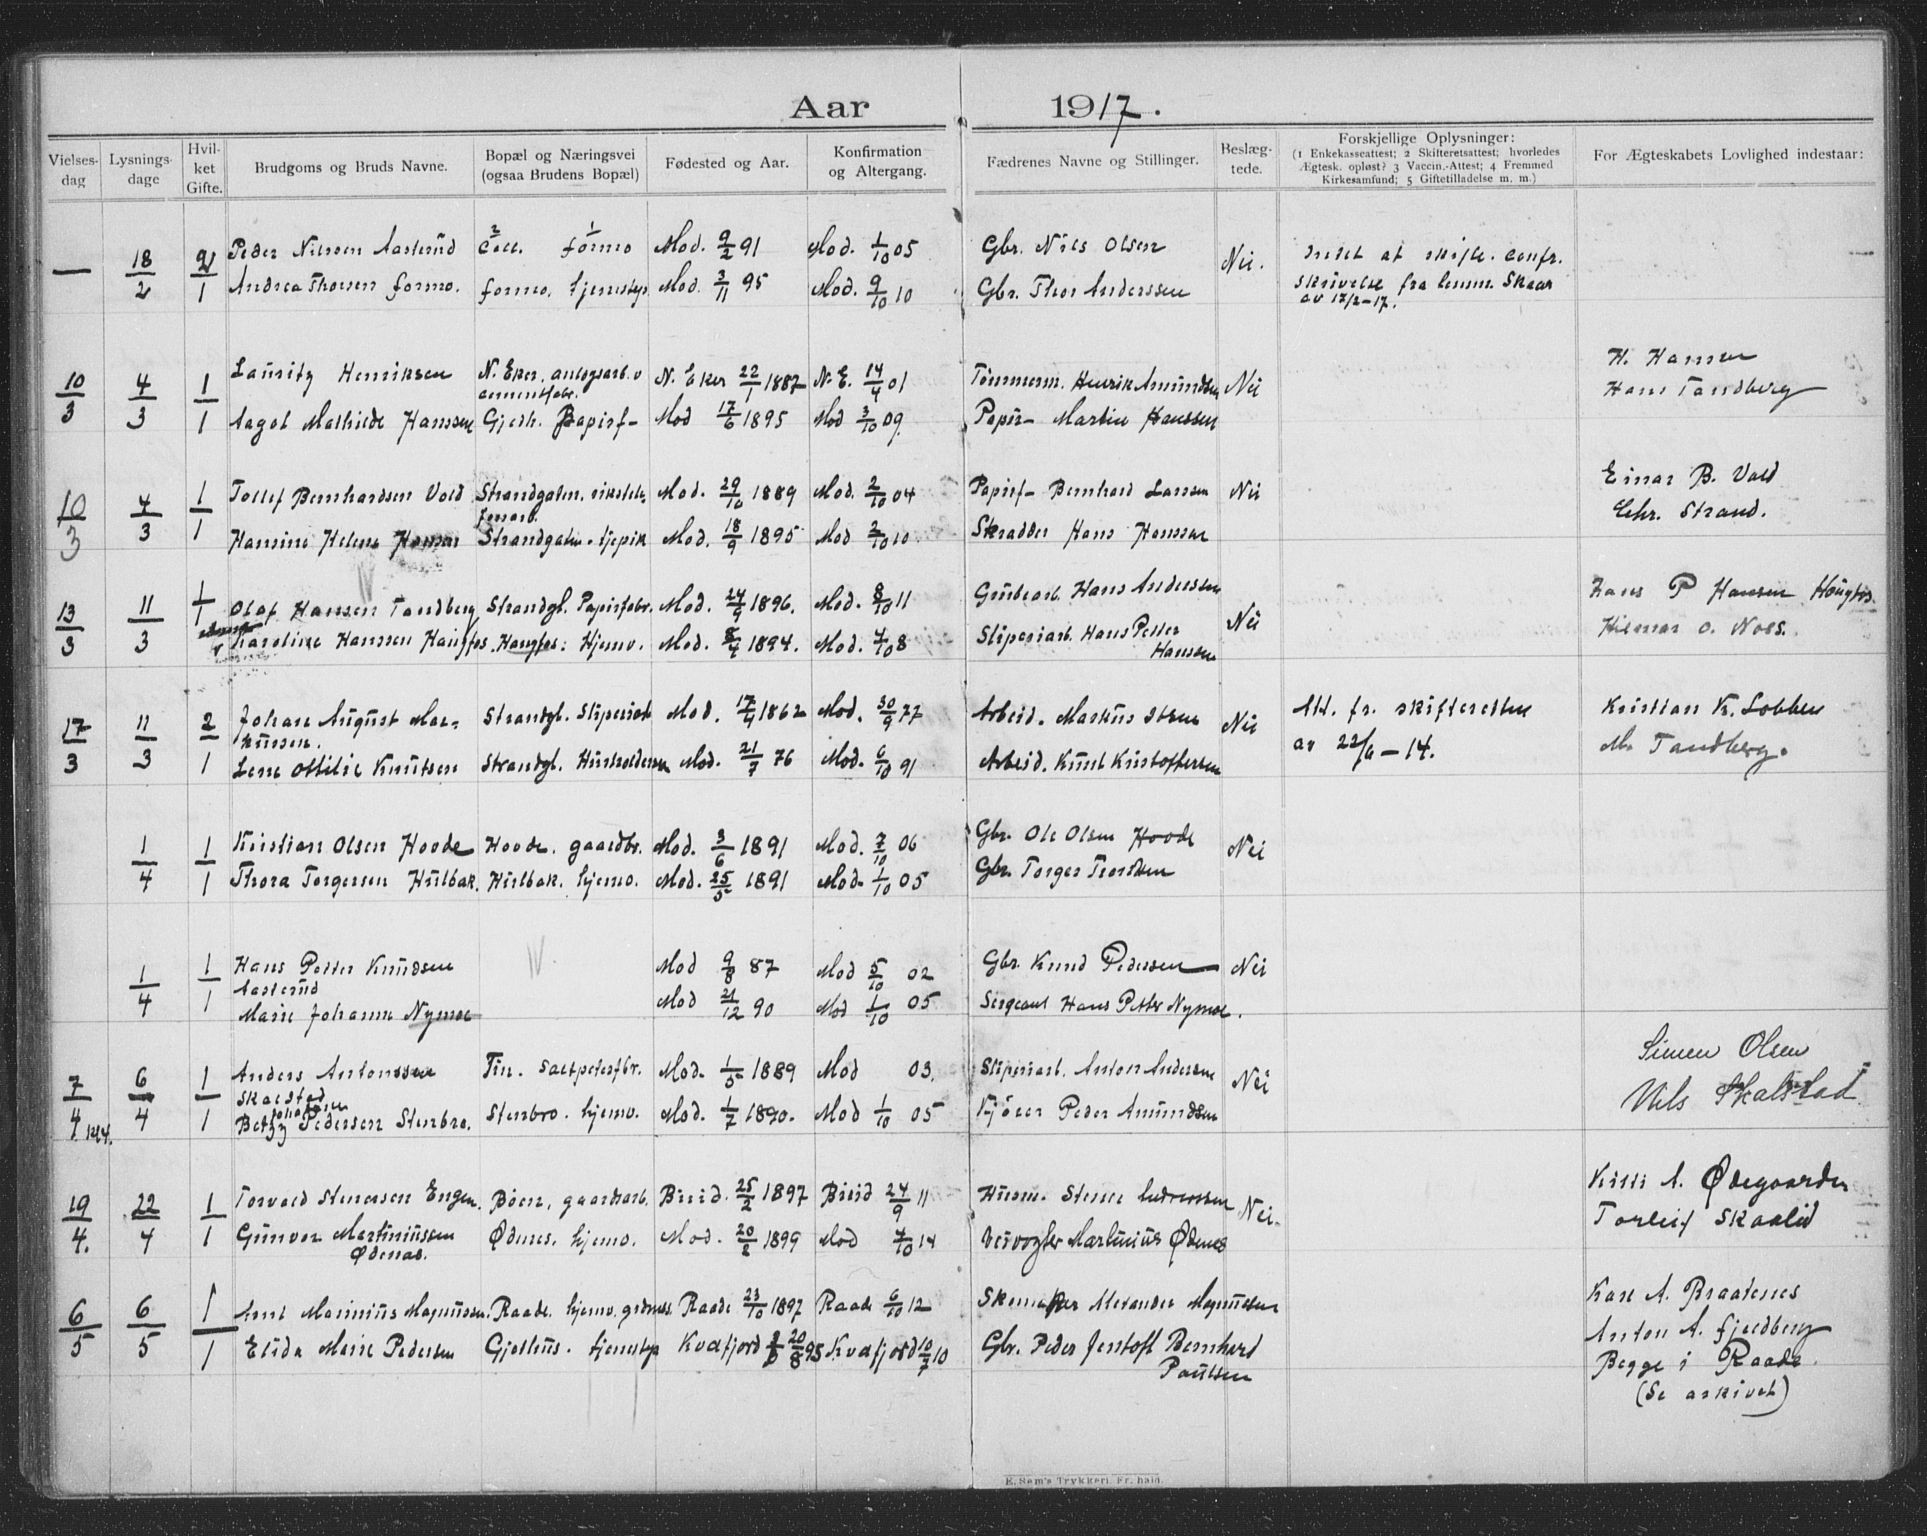 Aar 1917.
Vielses-dag
Lysnings-dage
Hvil-ket Gifte.
Brudgoms og Bruds Navne.
Bopæl og Næringsvei (ogsaa Brudens Bopæl)
Fødested og Aar.
Konfirmation og Altergang.
Fædrenes Navne og Stillinger.
Beslæg-tede.
Forskjellige Oplysninger:
(1 Enkekasseattest; 2 Skifteretsattest; hvorledes
Ægtesk. opløst? 3 Vaccin.-Attest; 4 Fremmed
Kirkesamfund; 5 Giftetilladelse m. m.)
For Ægteskabets Lovlighed indestaar:
— 18/2 2/1 Peder Nilssen Aasterud formo Mod. 9/2 91 Mod. 1/10 05 Gbr. Nils Olsen Nei. intet at skifte. Confr.
Andrea Thorsen formo. formo, hjemstyr Mod. 3/11 95 Mod. 9/10 10 Gbr. Thor Anderssen skrivelse fra lensm. Skaar
av 17/2-17.
10/3 4/3 1/1 Lauritz Henriksen N. Eker, anlægsarb. v N. Eker 22/1 1887 N. E. 14/4 01 Tømmerm. Henrik Amundsen Nei H. Hansen
cementfabr. Hans Tandberg
Aagot Mathilde Hanssen Gjeth. Papirf- Mod 17/6 1895 Mod 3/10 09. Papir- Martin Hanssen
10/3 4/3 1/1 Tollef Bernhardsen Vold Strandgaten. Mod. 29/10 1889 Mod. 2/10 04 Papirf- Bernhard Larsen Nei Einar B. Vold
Chr. Strand.
Hansine Helene Hansen Strandgaten. tjepik Mod. 18/9 1895 Mod 2/10 10. Skrædder Hans Hanssen
13/3 11/3 1/1 Olaf Hansen Tandberg Strandgt. Papirfabr. Mod. 24/9 1896. Mod. 8/10 11 Grubearb. Hans Andersen Nei Hans P Hansen Hougfos.
Karoline Hanssen Haugfos Haugfos: Hjemv. Mod. 8/4 1894. Mod. 4/10 8 Sliperiarb. Hans Petter Hilmar O. Moes.
Hansen
17/3 11/3 2/1 Johan August Mar- Strandgt. Sliperiarb Mod. 17/9 1862 Mod. 30/9 77 Arbeid. Markus Olsen Nei Att. fr. skifteretten Kristian K. Lobben
kussen. av 22/6-14. M. Tandberg.
Lene Ottilie Knutsen Strandgt. Husholderske Mod. 21/7 76 Mod. 6/10 91 Arbeid. Knut Kristoffersen
1/4 1/1 Kristian Olsen Hovde Hovde. gaardbr. Mod. 3/6 1891 Mod. 7/10 06 Gbr. Ole Olsen Hovde Nei
Thora Torgersen Hulbak. Hulbak. hjemv. Mod. 25/5 1891 Mod. 1/10 05 Gbr. Torger
1/4 1/1 Hans Petter Knudsen Mod 9/8 87 Mod 5/10 02 Gbr. Knud Pedersen Nei
Aasterud
Marie Johanne Nymoe Mod 21/12 90 Mod 1/10 05 Sergeant Hans Petter Nymoe.
7/4 6/4 1/1 Anders Antonssen Tin. Saltpeterfbr. Mod. 1/5 1889 Mod 03. Sliperiarb. Anton Andersen Nei Simen Olsen
Skalstad Nils Skalstad
Johanne
Betzy Pedersen Stenbro. Stenbro. hjemv. Mod. 1/7 1890. Mod 1/10 05 Kjører Peder Amundsen
19/4. 22/4 1/1 Torvald Stenersen Engen. Böen, gaardsarb. Birid. 25/2 1897 Birid 24/9 11 Husm. Stener Andreassen Nei. Kitil A. Ødegaarden
Torleif Skaalid
Gunvor Martiniussen Ødenes. hjemv. Mod. 20/2 1899 Mod 4/10 14 Veivogter Martinius Ødenes
Ødenas.
6/5 6/5 1/1 Arnt Marinius Magnussen. Raade. hjemv. Raade 23/10 1897 Raade 6/10 12 Skomaker Alexander Magnussen Kare A. Braatenes
Anton A. fjeldberg
Elida Marie Pedersen Gjethus. hjemstyr Kvæfjord 20/8 95 Kvæfjord 10/7 10 Gbr. Peder Jentoft Bernhard Begge i Raade.
Paulsen (Se arkivet)
E. Sem's Trykkeri, Fr. hald.